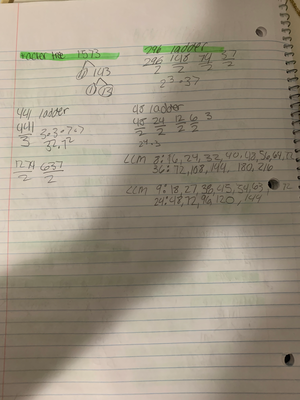 Factor tree 1573
11 143
11 13
296 ladder
296 148 74 37
2 2 2 2
2³·37
441 ladder
441 3·3·7·7
3 3²·7²
48 ladder
48 24 12 6 3
2 2 2 2
2⁴·3
1274 637
2 2
LCM 8: 16, 24, 32, 40, 48, 56, 64, 72
36: 72, 108, 144, 180, 216
LCM 9: 18, 27, 36, 45, 54, 63, 72
24: 48, 72, 96, 120, 144